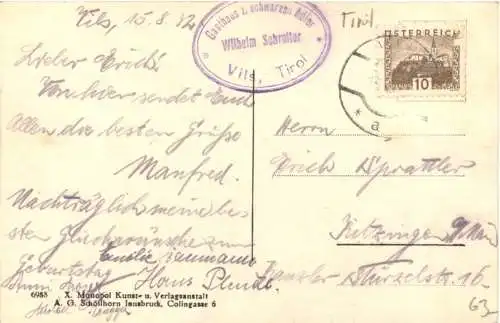 Vils, 15.8.32
Lieber Erich!
Von hier sendet Euch
Allen die besten Grüße
Manfred.
Nachträglich meine bes-
ten Glückwünsche zum
Geburtstag
Familie
Hans
6985 X. Monopol Kunst- u. Verlagsanstalt
A. G. Schöllhorn Innsbruck, Colingasse 6
Gasthaus z. schwarzen Adler
Wilhelm Schretter
Vils, Tirol
Tirol.
ÖSTERREICH
10
* a
Herrn
Erich Sprattler
Kitzingen a/Main
Kanzler Stürzelstr. 16.
63